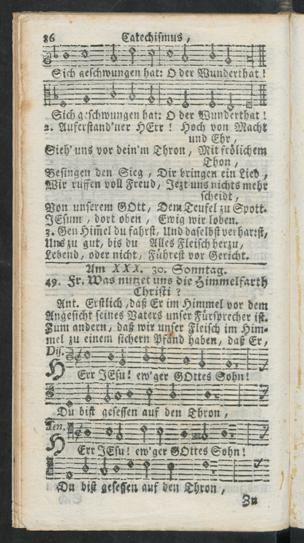 86 Catechismus,
Sich geschwungen hat: O der Wunderthat!
Sich geschwungen hat: O der Wunderthat!
2. Auferstand'ner HErr! Hoch von Macht
und Ehr,
Sieh' uns vor dein'm Thron, Mit frölichem
Thon,
Besingen den Sieg, Dir bringen ein Lied,
Wir ruffen voll Freud, Jezt uns nichts mehr
scheidt,
Von unserem GOtt, Dem Teufel zu Spott.
JEsum, dort oben, Ewig wir loben.
3. Gen Himel du fahrst, Und daselbst verharrst,
Uns zu gut, bis du Alles Fleisch herzu,
Lebend, oder nicht, Führest vor Gericht.
Am XXX. 30. Sonntag.
49. Fr. Was nutzet uns die Himmelfarth
Christi?
Ant. Erstlich, daß Er im Himmel vor dem
Angesicht seines Vaters unser Fürsprecher ist.
Zum andern, daß wir unser Fleisch im Him-
mel zu einem sichern Pfand haben, daß Er,
Dis.
HErr JEsu! ew'ger GOttes Sohn!
Du bist gesessen auf den Thron,
Ten.
HErr JEsu! ew'ger GOttes Sohn!
Du bist gesessen auf den Thron,
Zu